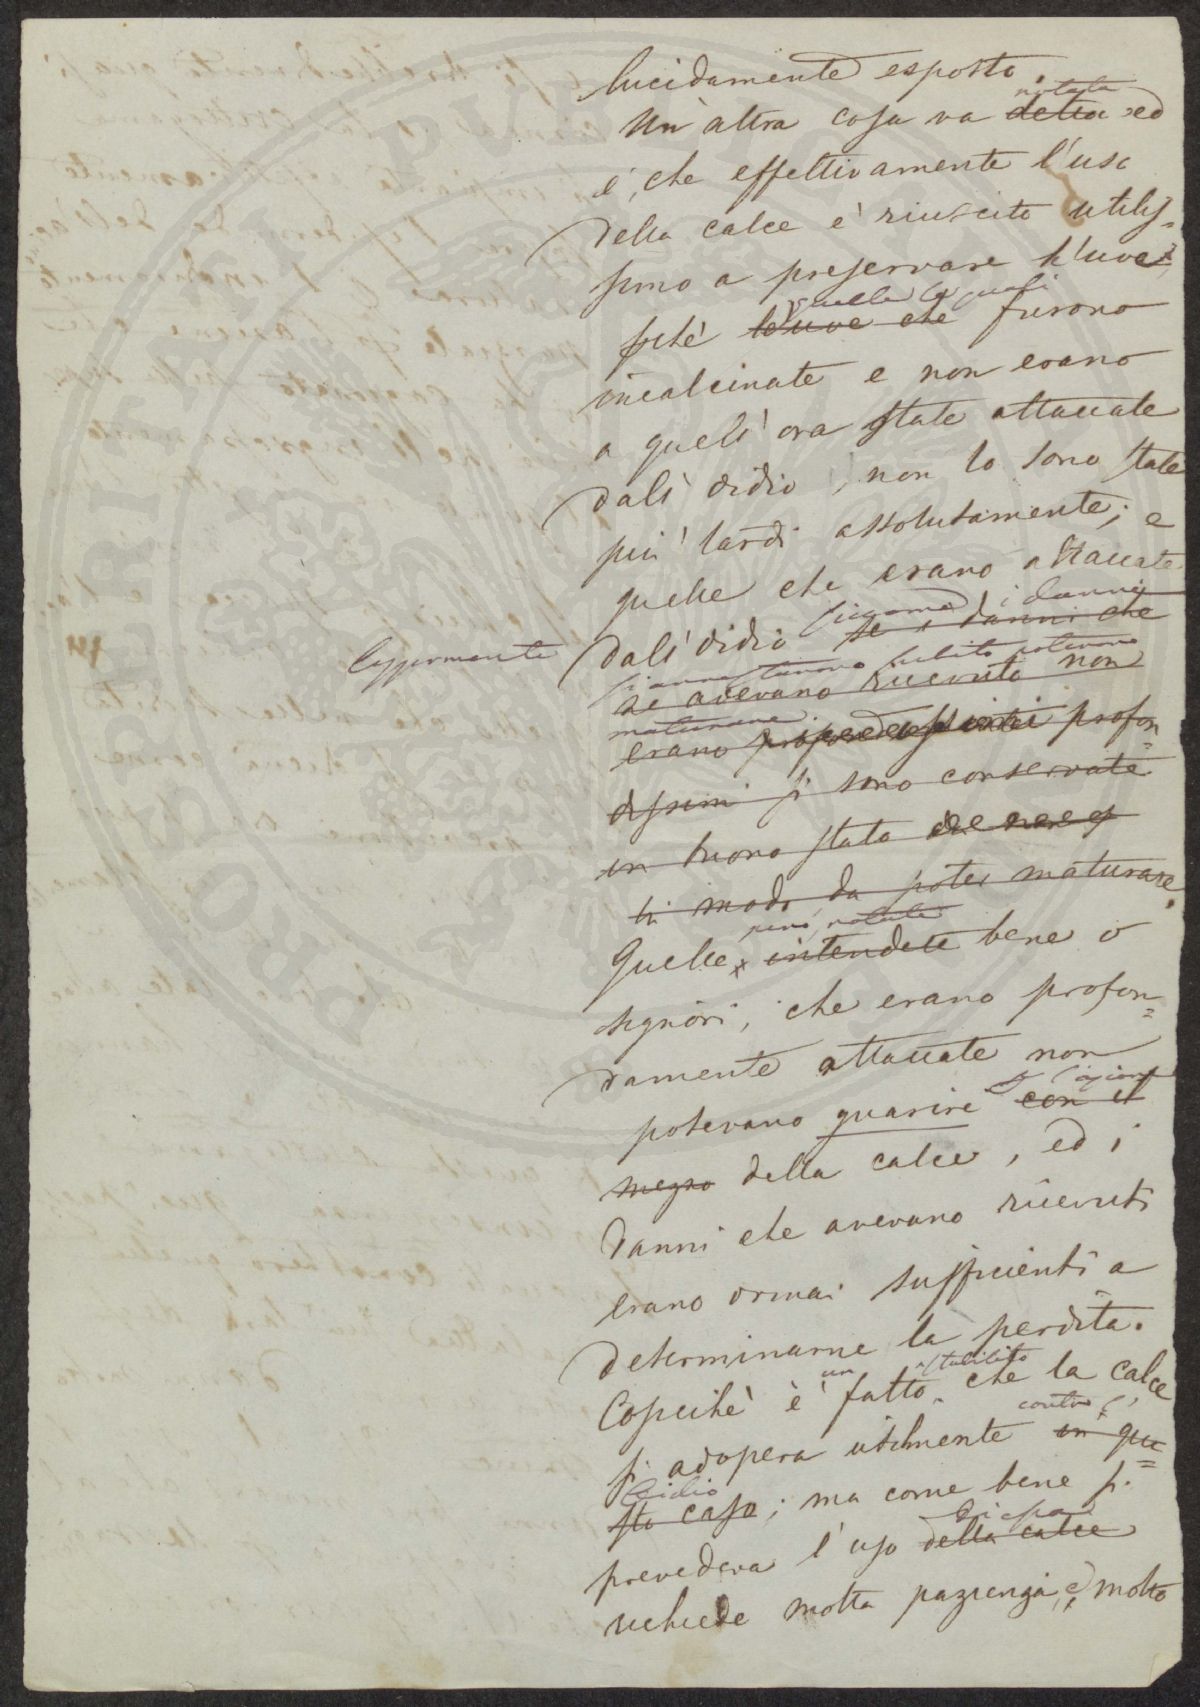 lucidamente esposto.
notata
Un'altra cosa va detta ed
è, che effettivamente l'uso
della calce è riuscito utilis=
simo a preservare l'uva,
quelle le quali
chè le uve che furono
incalcinate e non erano
a quell'ora state attaccate
dall'oidio, non lo sono state
più tardi assolutamente; e
quelle che erano attaccate
leggermente
dall'oidio se i danni che
siccome i danni
si arrestarono subito poterono
se avevano ricevuto non
maturare.
erano profon=
dissimi si sono conservate
in buono stato
in modo da poter maturare.
però, notate
Quelle intendete bene o
signori, che erano profon=
damente attaccate non
potevano guarire con il
l'azione
mezzo della calce, ed i
danni che avevano ricevuti
erano ormai sufficienti a
determinarne la perdita.
un stabilito
Cosicchè è fatto che la calce
contro l'
si adopera utilmente in que=
oidio
sto caso; ma come bene si
di essa
prevedeva l'uso della calce
richiede molta pazienza, e molto